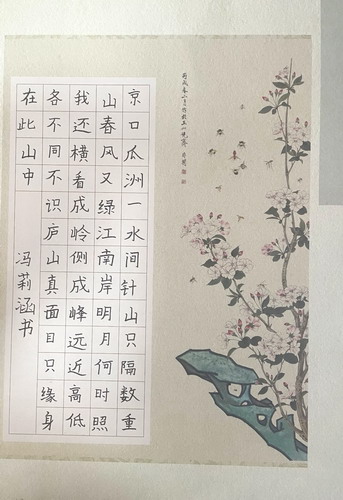 京口瓜洲一水间针山只隔数重
山春风又绿江南岸明月何时照
我还横看成岭侧成峰远近高低
各不同不识庐山真面目只缘身
在此山中
冯莉涵书